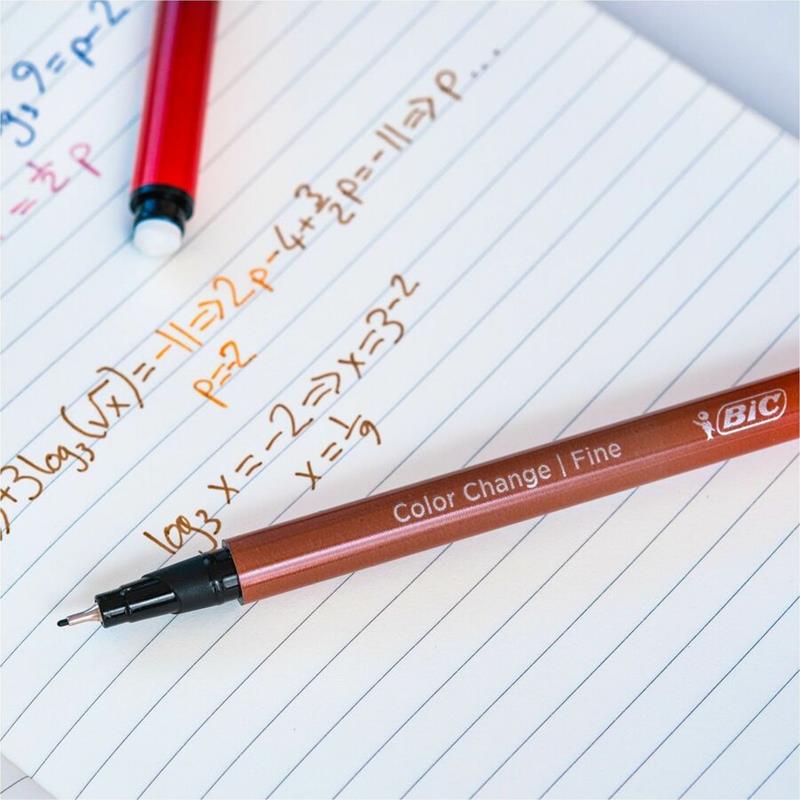 log₃ 9 = p - 2
= ½ p
+ 3 log₃ (√x) = -11 => 2p - 4 + 3/2 p = -11 => p ...
p = -2
log₃ x = -2 => x = 3⁻²
x = 1/9
Color Change | Fine
BiC